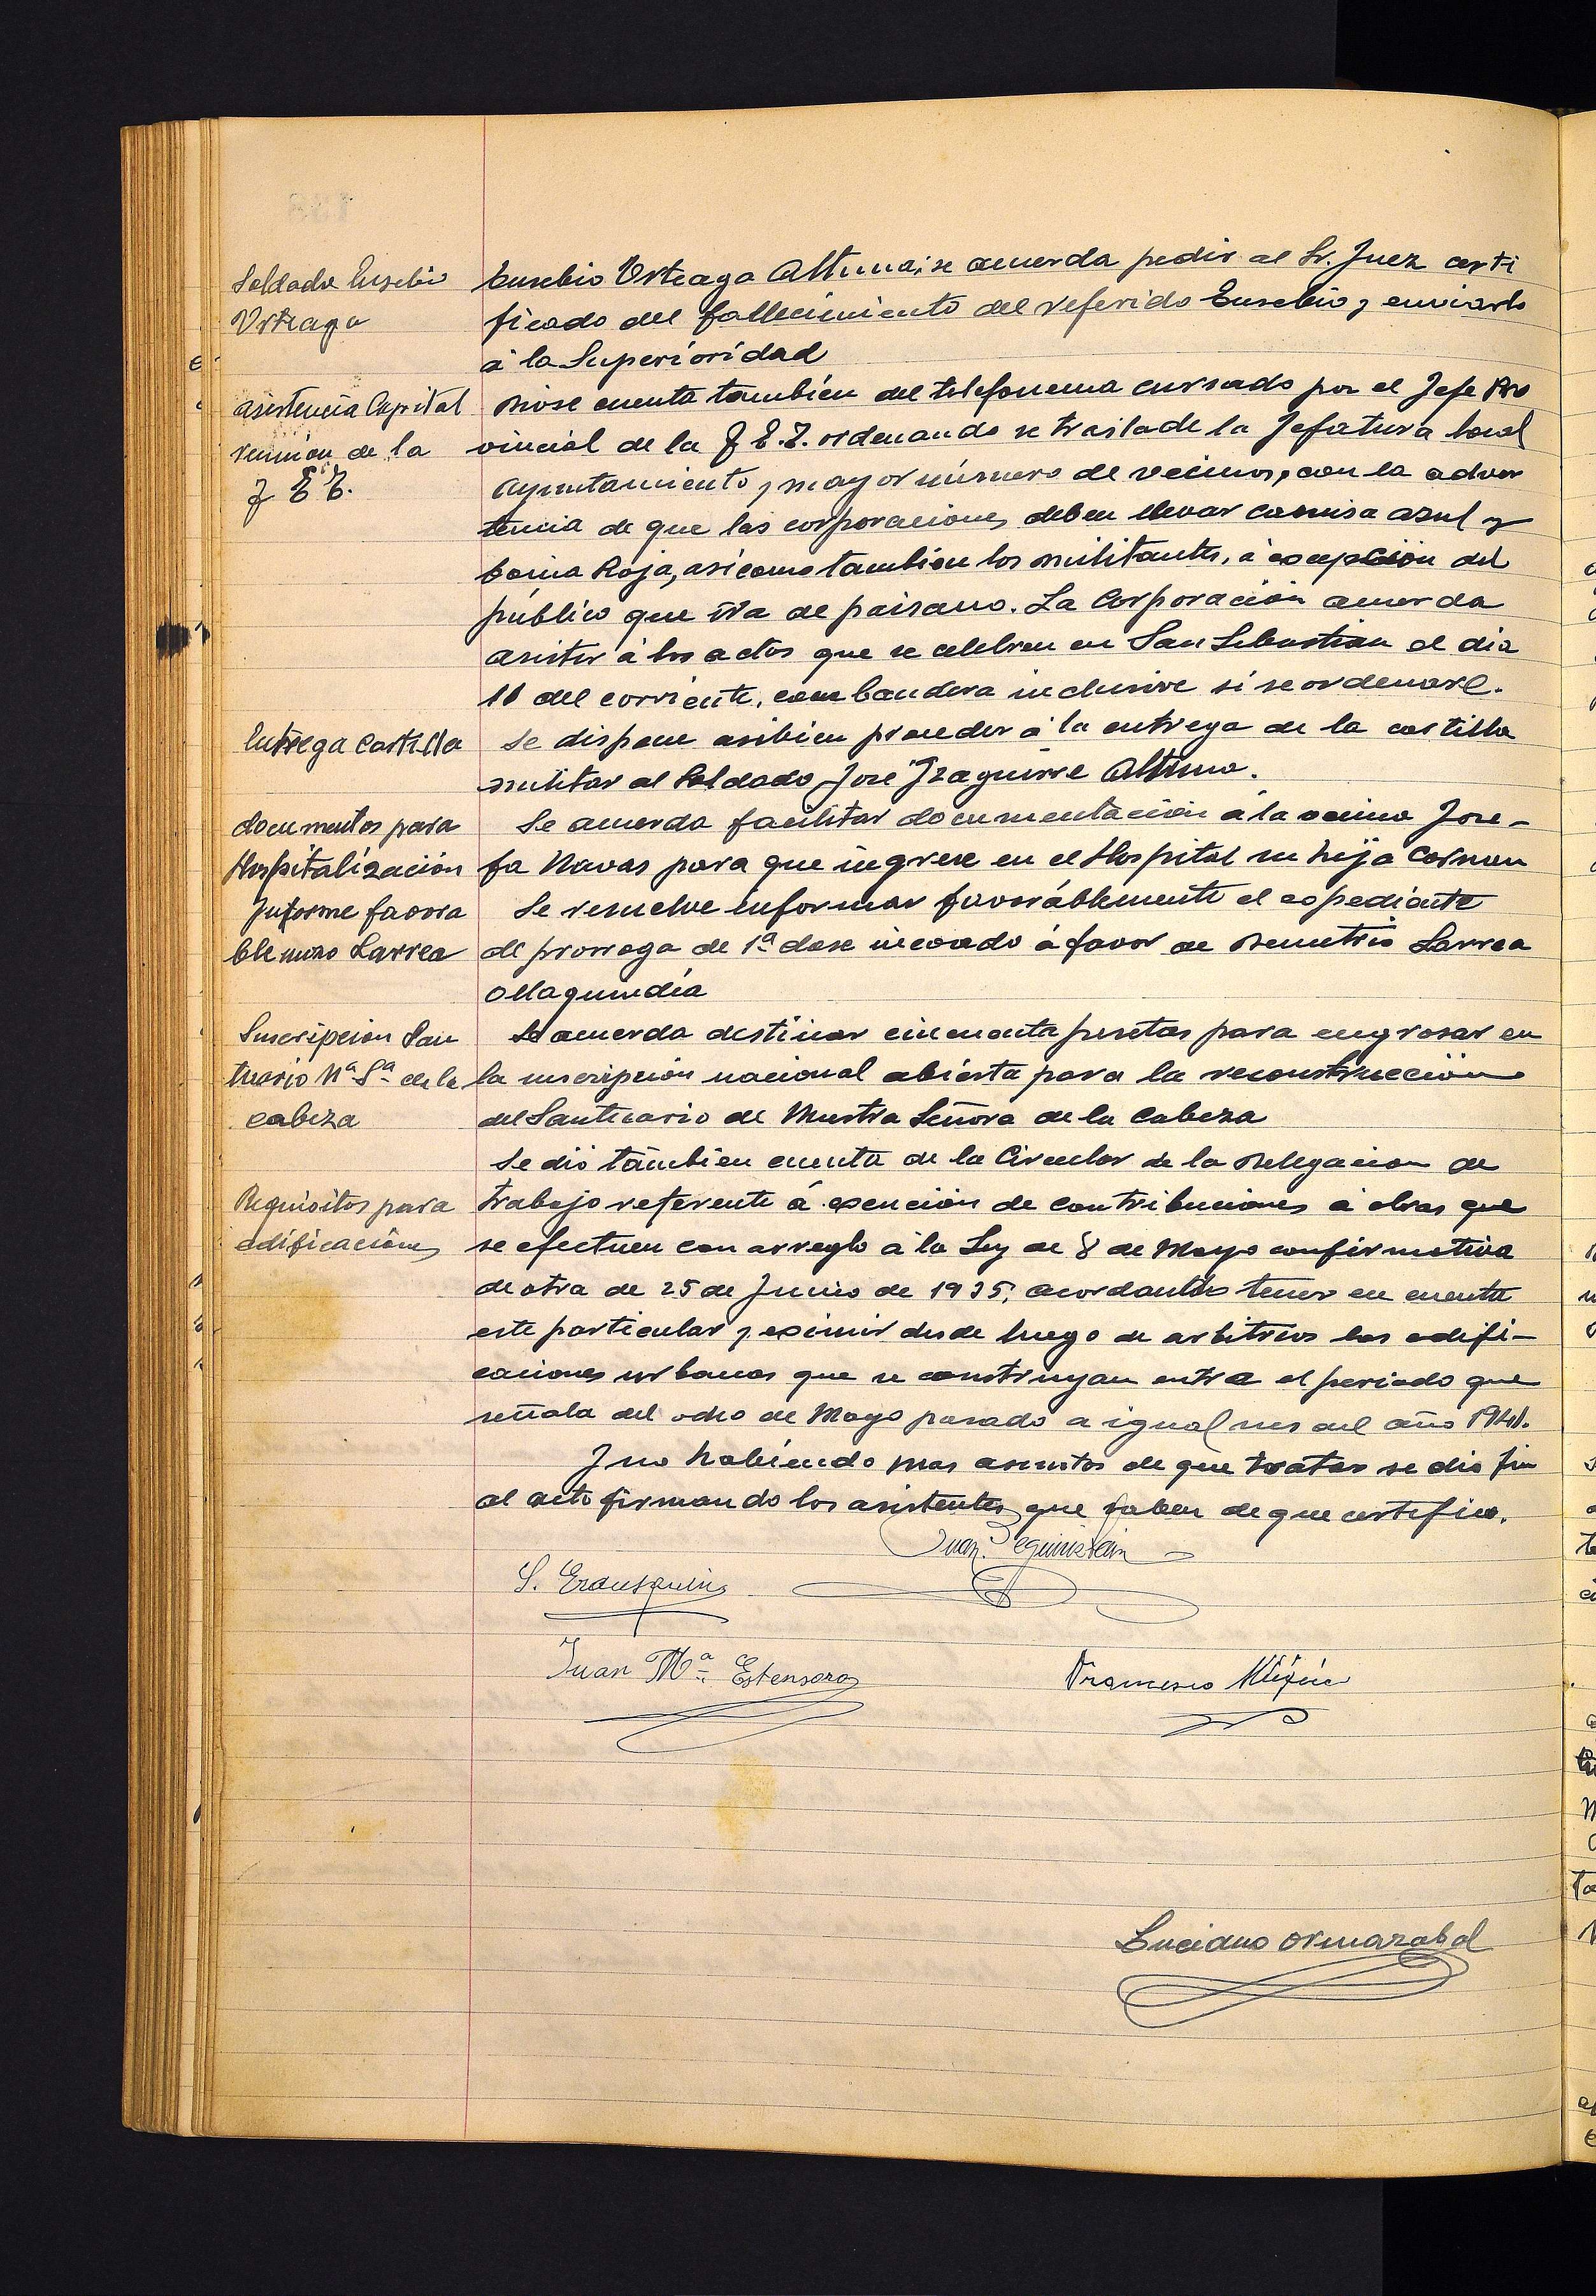 Soldado Eusebio
Urteaga
Eusebio Urteaga Altuna; se acuerda pedir al Sr. Juez certi
ficado del fallecimiento del referido Eusebio y enviarlo
á la Superioridad
asistencia Capital
reunión de la
F E T.
Diose cuenta también del telefonema cursado por el Jefe Pro
vincial de la F E. T. ordenando se traslade la Jefatura local
Ayuntamiento y mayor número de vecinos, con la adver
tencia de que las corporaciones deben llevar camisa azul y
boina Roja, asi como tambien los militantes, á excepción del
público que irá de paisano. La Corporación acuerda
asistir á los actos que se celebren en San Sebastian el dia
18 del corriente, con bandera inclusive si se ordenare.
Entrega Cartilla
Se dispone asibien proceder á la entrega de la cartilla
militar al Soldado José Izaguirre Altuna.
documentos para
Hospitalización
Se acuerda facilitar documentación á la vecina Jose-
fa Navas para que ingrese en el Hospital su hija Carmen
Informe favora
ble mozo Larrea
Se resuelve informar favorablemente el expediente
de prorroga de 1ª clase incoado á favor de Demetrio Larrea
Ollaquindia
Suscripcion San
tuario Nª Sª de la
Cabeza
Se acuerda destinar cincuenta pesetas para engrosar en
la suscripción nacional abierta para la reconstrucción
del Santuario de Nuestra Señora de la Cabeza
Requisitos para
edificaciones
Se dió también cuenta de la Circular de la Delegacion de
trabajo referente á exención de contribuciones á obras que
se efectuen con arreglo á la Ley de 8 de Mayo confirmativa
de otra de 25 de Junio de 1935, acordandose tener en cuenta
este particular y eximir desde luego de arbitrios las edifi-
caciones urbanas que se construyan entre el periodo que
señala del ocho de Mayo pasado a igual mes del año 1941.
Y no habiendo mas asuntos de que tratar se dio fin
al acto firmando los asistentes que saben de que certifico.
Juan Eguinistain
S. Erausquin
Juan Mª Estensoro
Francisco
Luciano Ormazabal